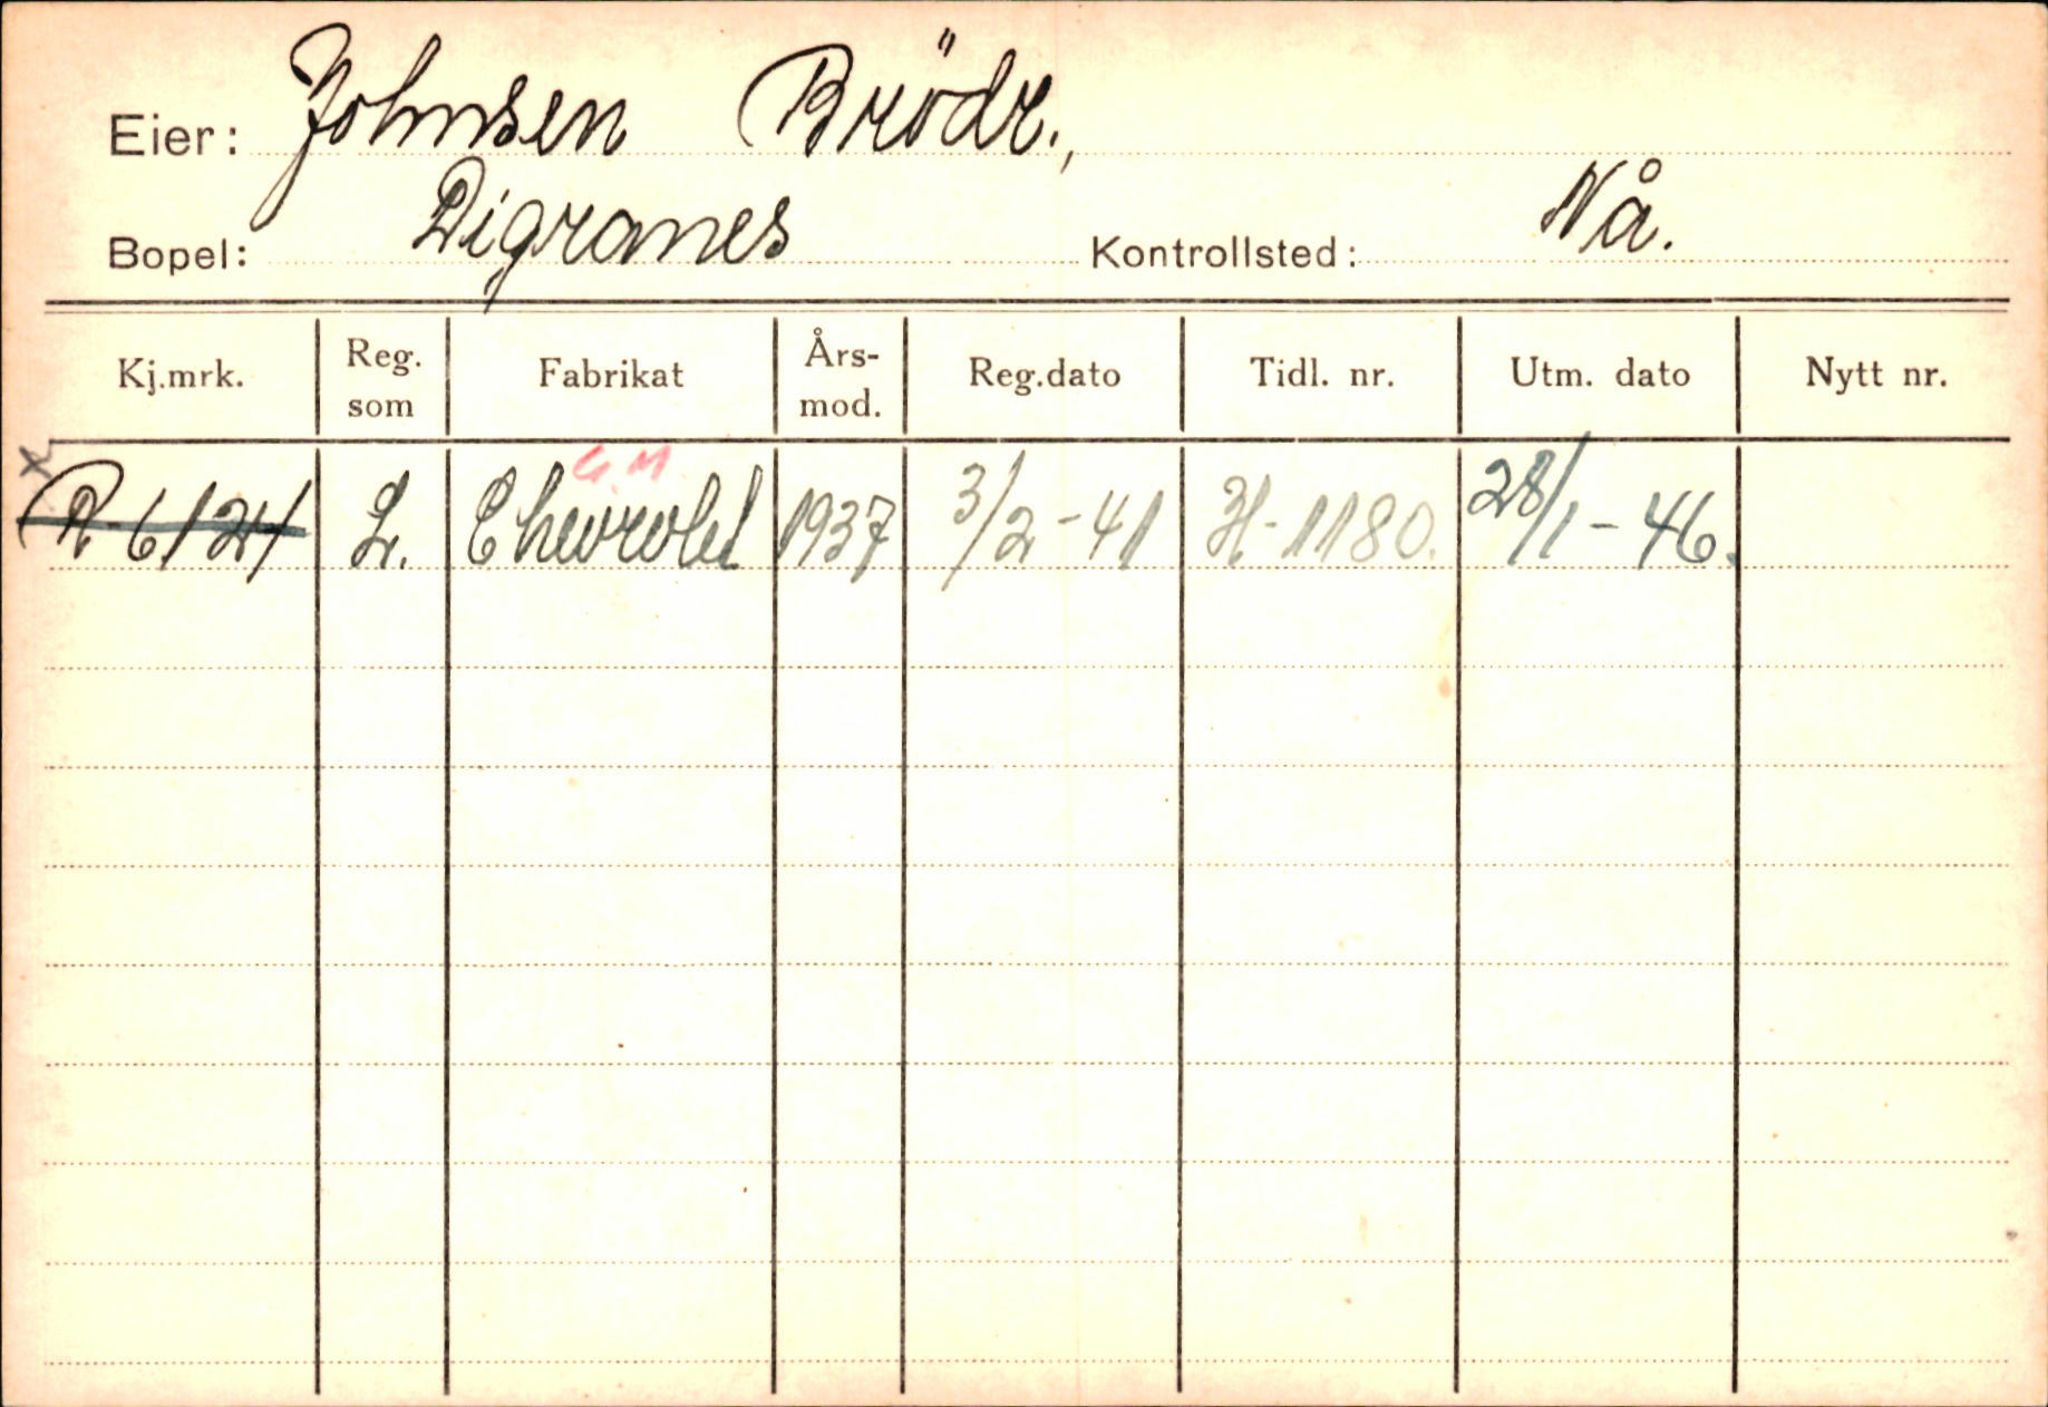 Eier: Johnsen Brödr.,
Bopel: Digranes Kontrollsted: Nå.
Kj.mrk. Reg. som Fabrikat Års- mod. Reg.dato Tidl. nr. Utm. dato Nytt nr.
x G.M.
R-6124 L. Chevrolet 1937 3/2-41 H-1180. 28/1-46.